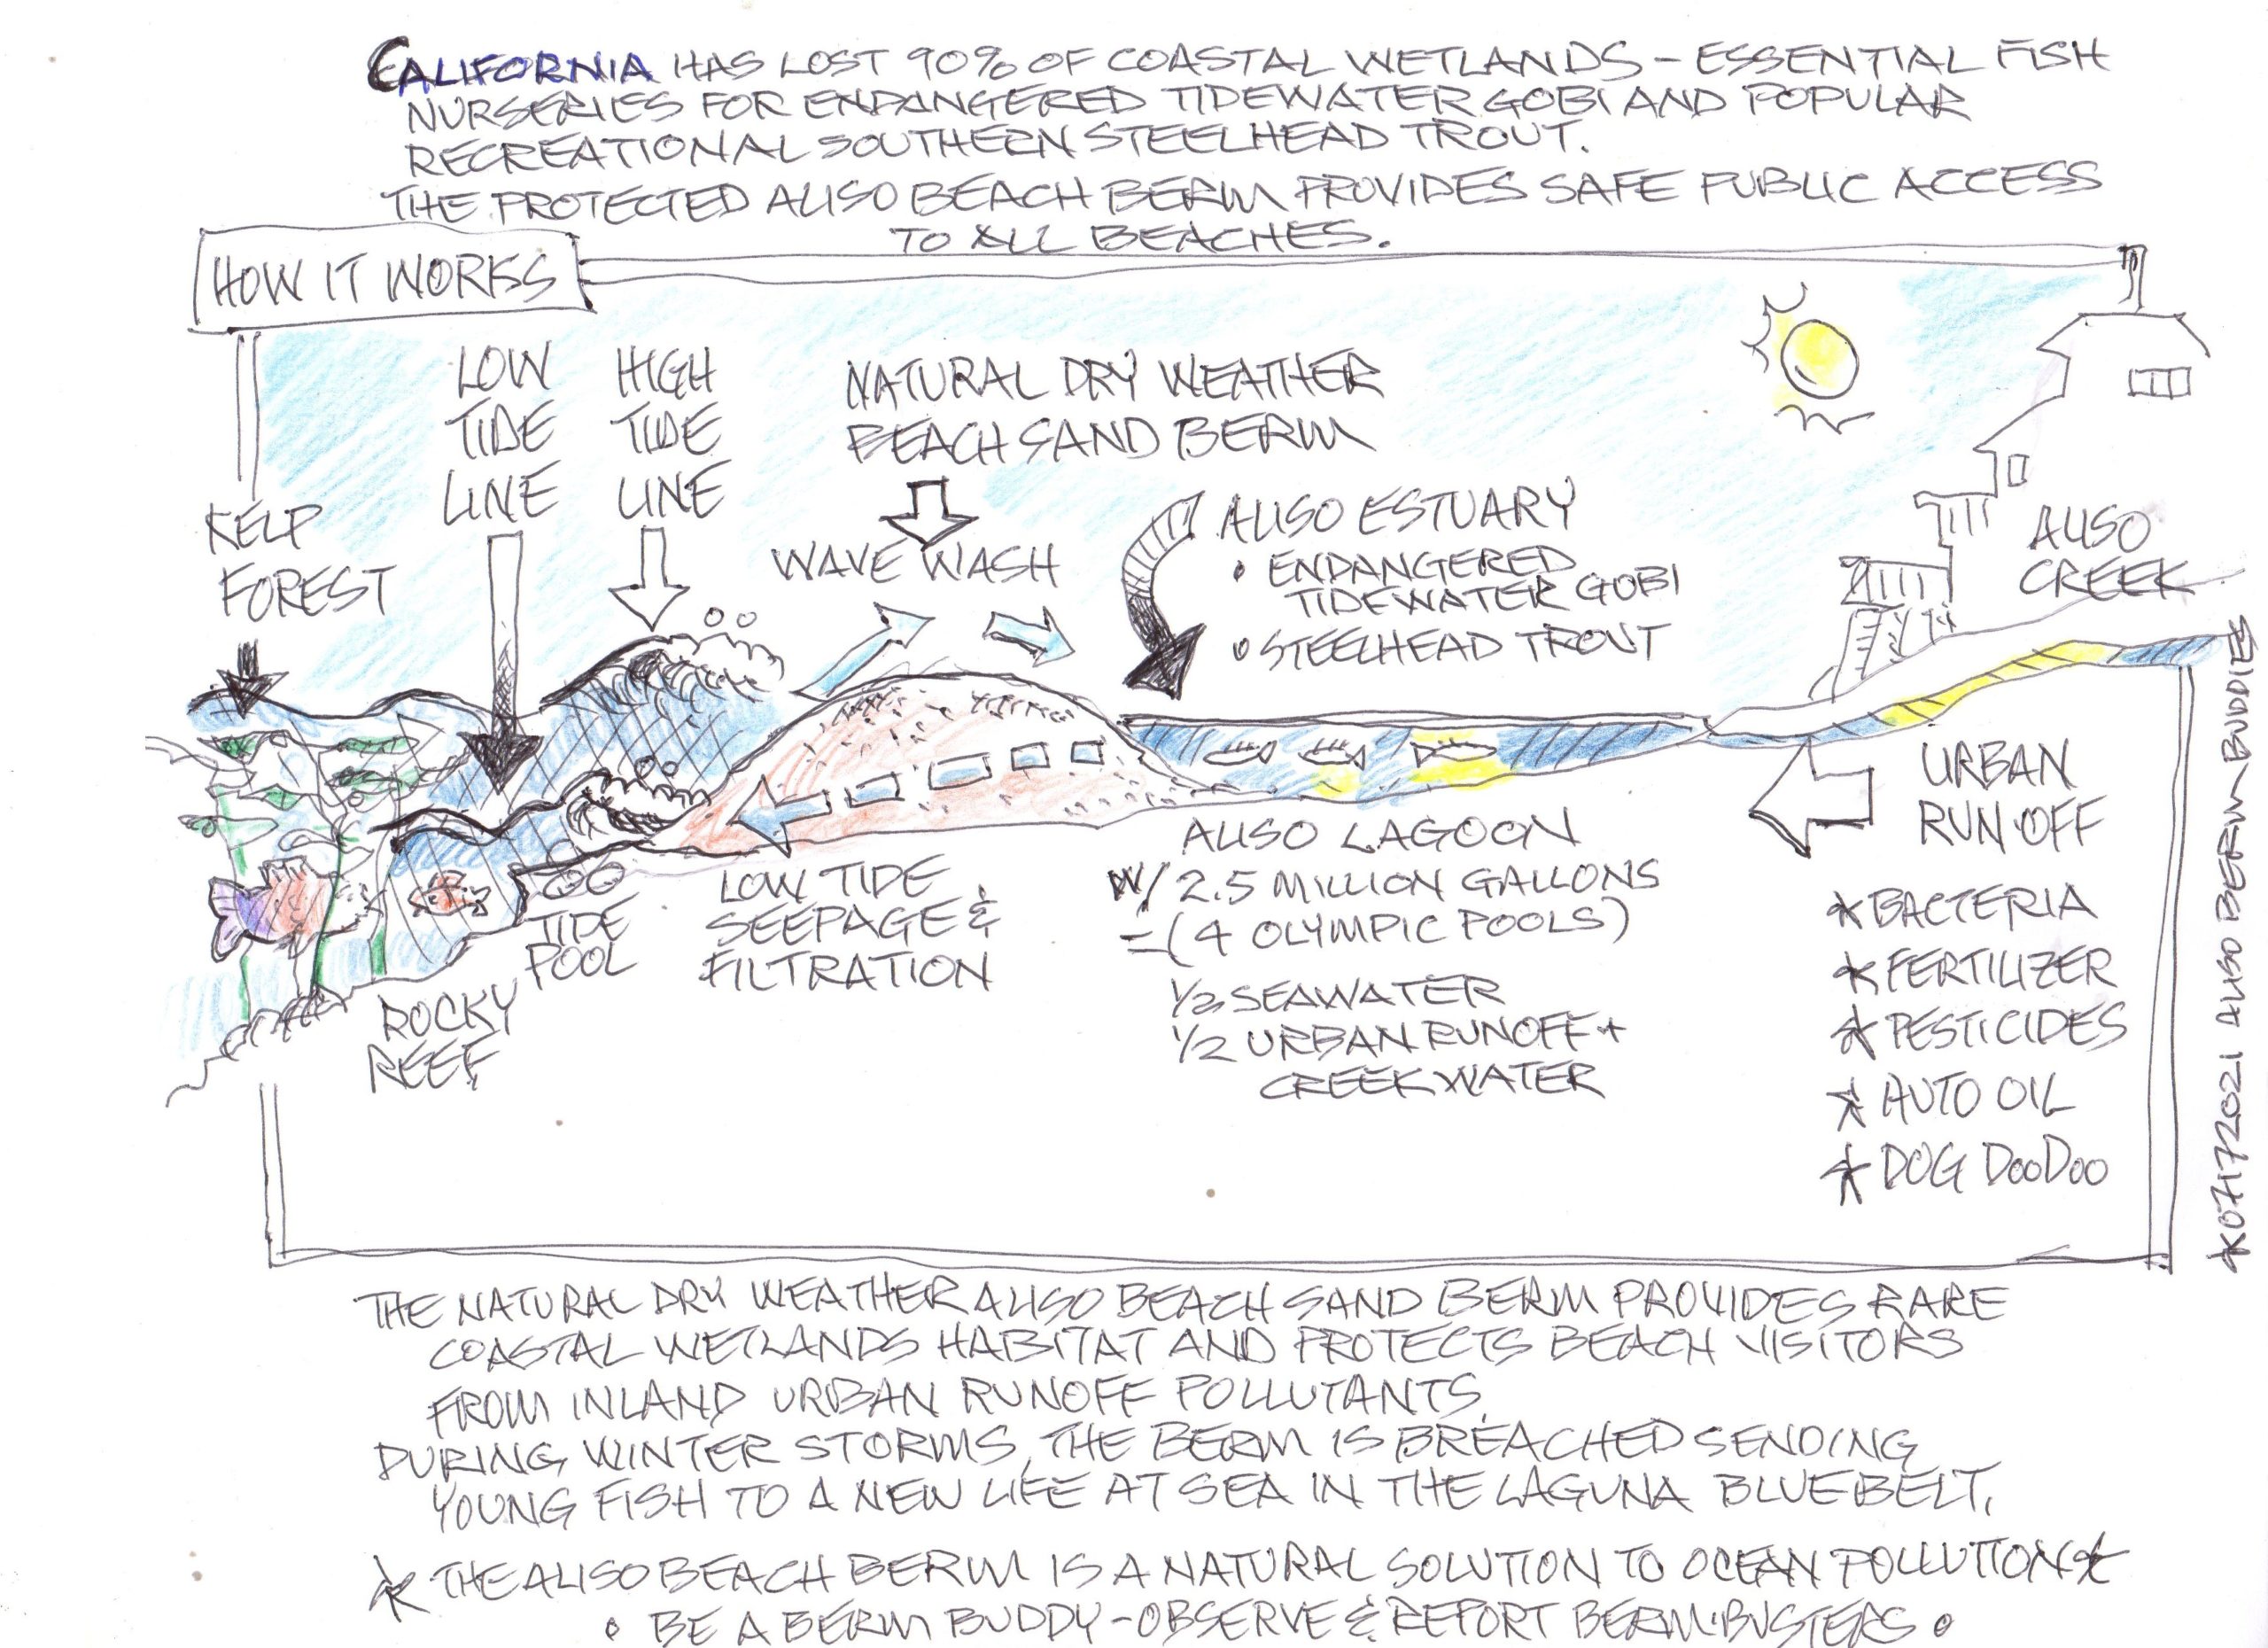 CALIFORNIA HAS LOST 90% OF COASTAL WETLANDS - ESSENTIAL FISH
NURSERIES FOR ENDANGERED TIDEWATER GOBI AND POPULAR
RECREATIONAL SOUTHERN STEELHEAD TROUT.
THE PROTECTED ALISO BEACH BERM PROVIDES SAFE PUBLIC ACCESS
TO ALL BEACHES.
HOW IT WORKS
KELP
FOREST
LOW
TIDE
LINE
HIGH
TIDE
LINE
NATURAL DRY WEATHER
BEACH SAND BERM
WAVE WASH
ALISO ESTUARY
• ENDANGERED
TIDEWATER GOBI
• STEELHEAD TROUT
ALISO
CREEK
URBAN
RUN-OFF
* BACTERIA
* FERTILIZER
* PESTICIDES
* AUTO OIL
* DOG DOODOO
ALISO LAGOON
W/ 2.5 MILLION GALLONS
= (4 OLYMPIC POOLS)
1/2 SEAWATER
1/2 URBAN RUNOFF +
CREEK WATER
LOW TIDE
SEEPAGE &
FILTRATION
TIDE
POOL
ROCKY
REEF
*07172021 ALISO BERM BUDDIES
THE NATURAL DRY WEATHER ALISO BEACH SAND BERM PROVIDES RARE
COASTAL WETLANDS HABITAT AND PROTECTS BEACH VISITORS
FROM INLAND URBAN RUNOFF POLLUTANTS.
DURING WINTER STORMS, THE BERM IS BREACHED SENDING
YOUNG FISH TO A NEW LIFE AT SEA IN THE LAGUNA BLUEBELT.
* THE ALISO BEACH BERM IS A NATURAL SOLUTION TO OCEAN POLLUTION *
• BE A BERM BUDDY - OBSERVE & REPORT BERM-BUSTERS •